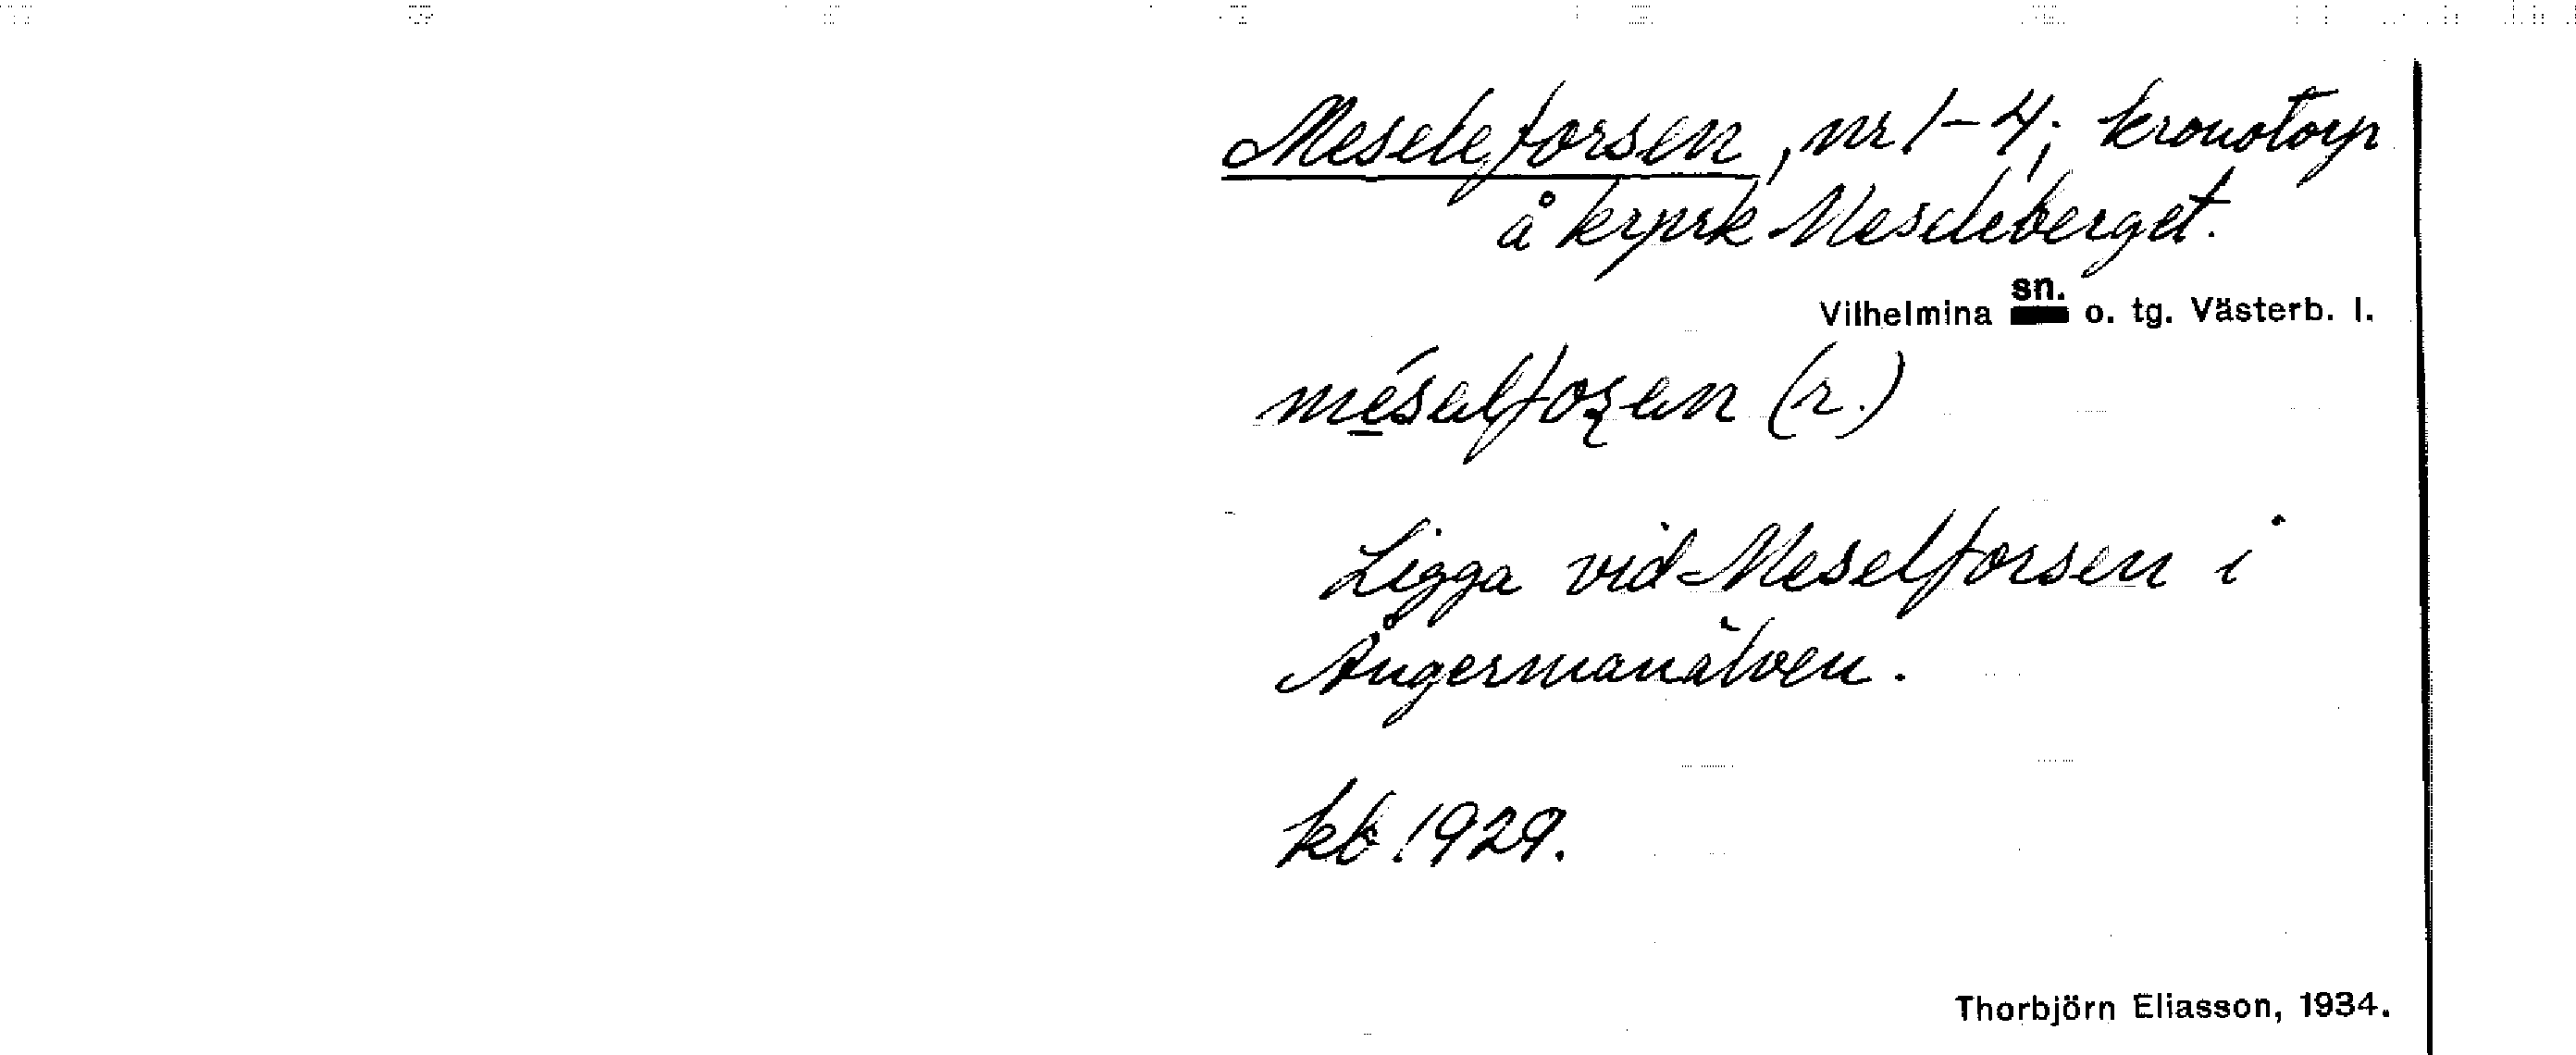 Meseleforsen, nr 1-4; kronotorp
å krprk Meseleberget.
Vilhelmina sn. o. tg. Västerb. l.
(r.)
Ligga vid Meselforsen i
Ångermanälven.
kb 1929.
Thorbjörn Eliasson, 1934.